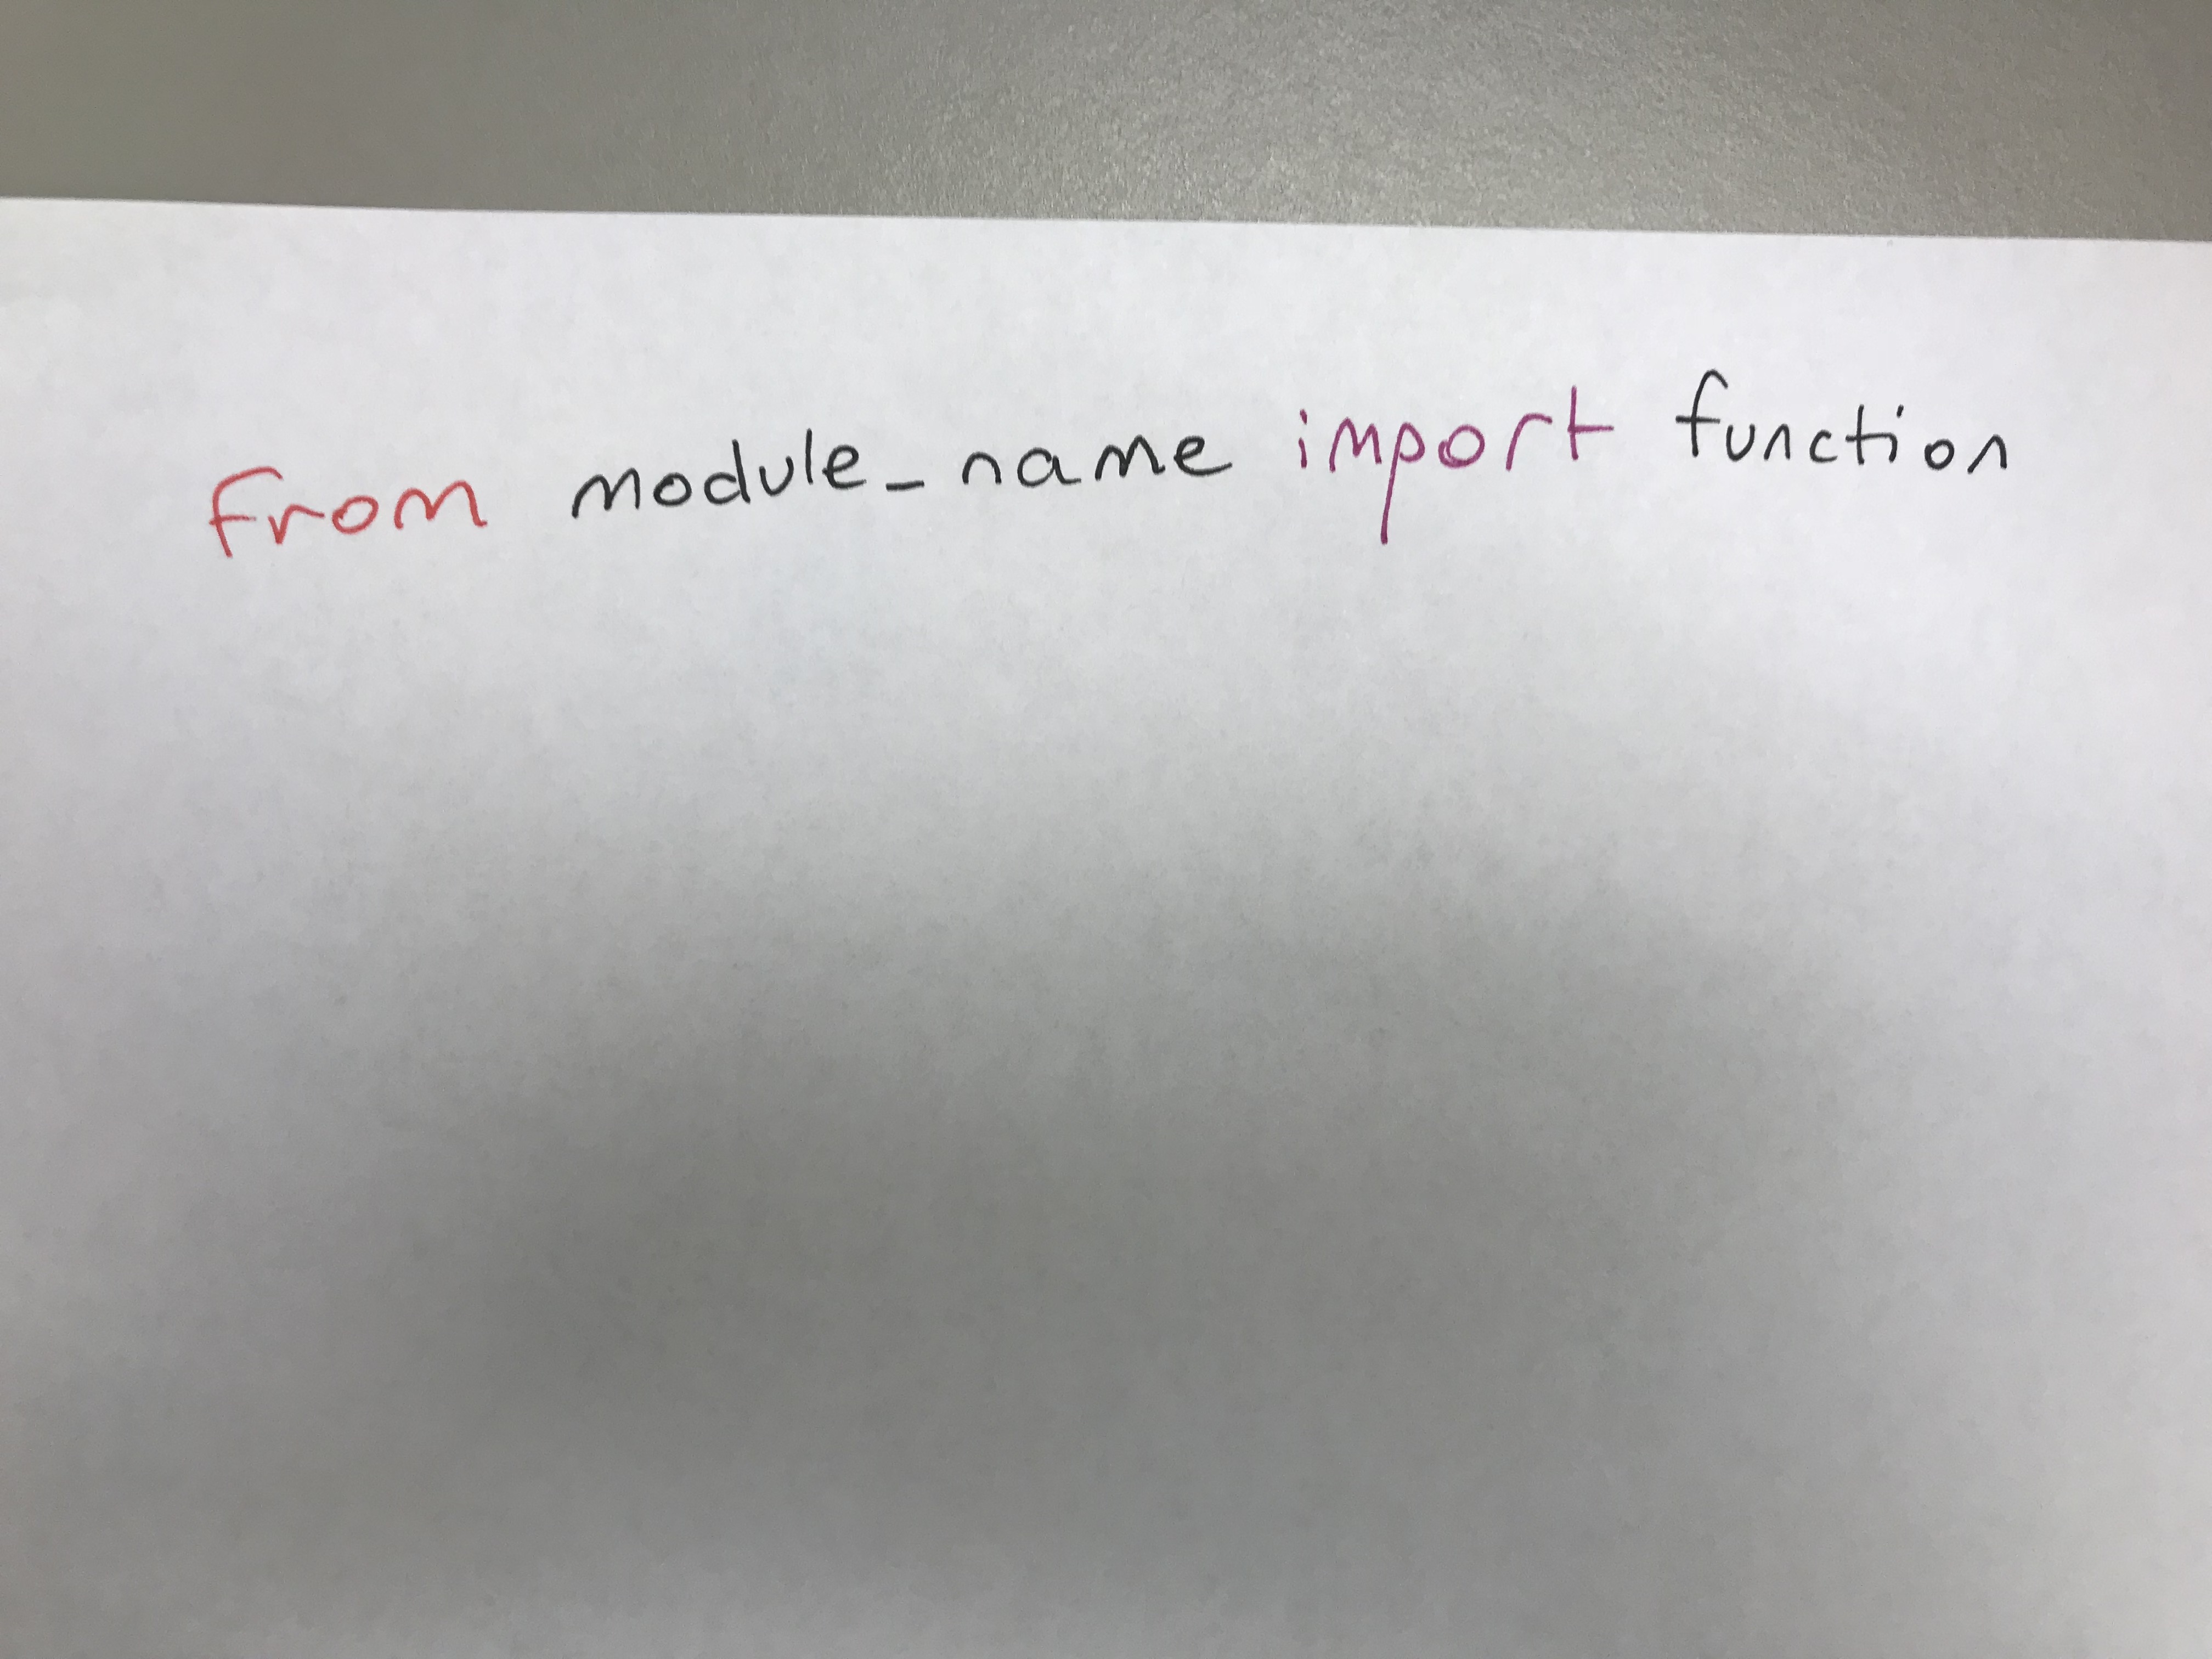 from module_name import function